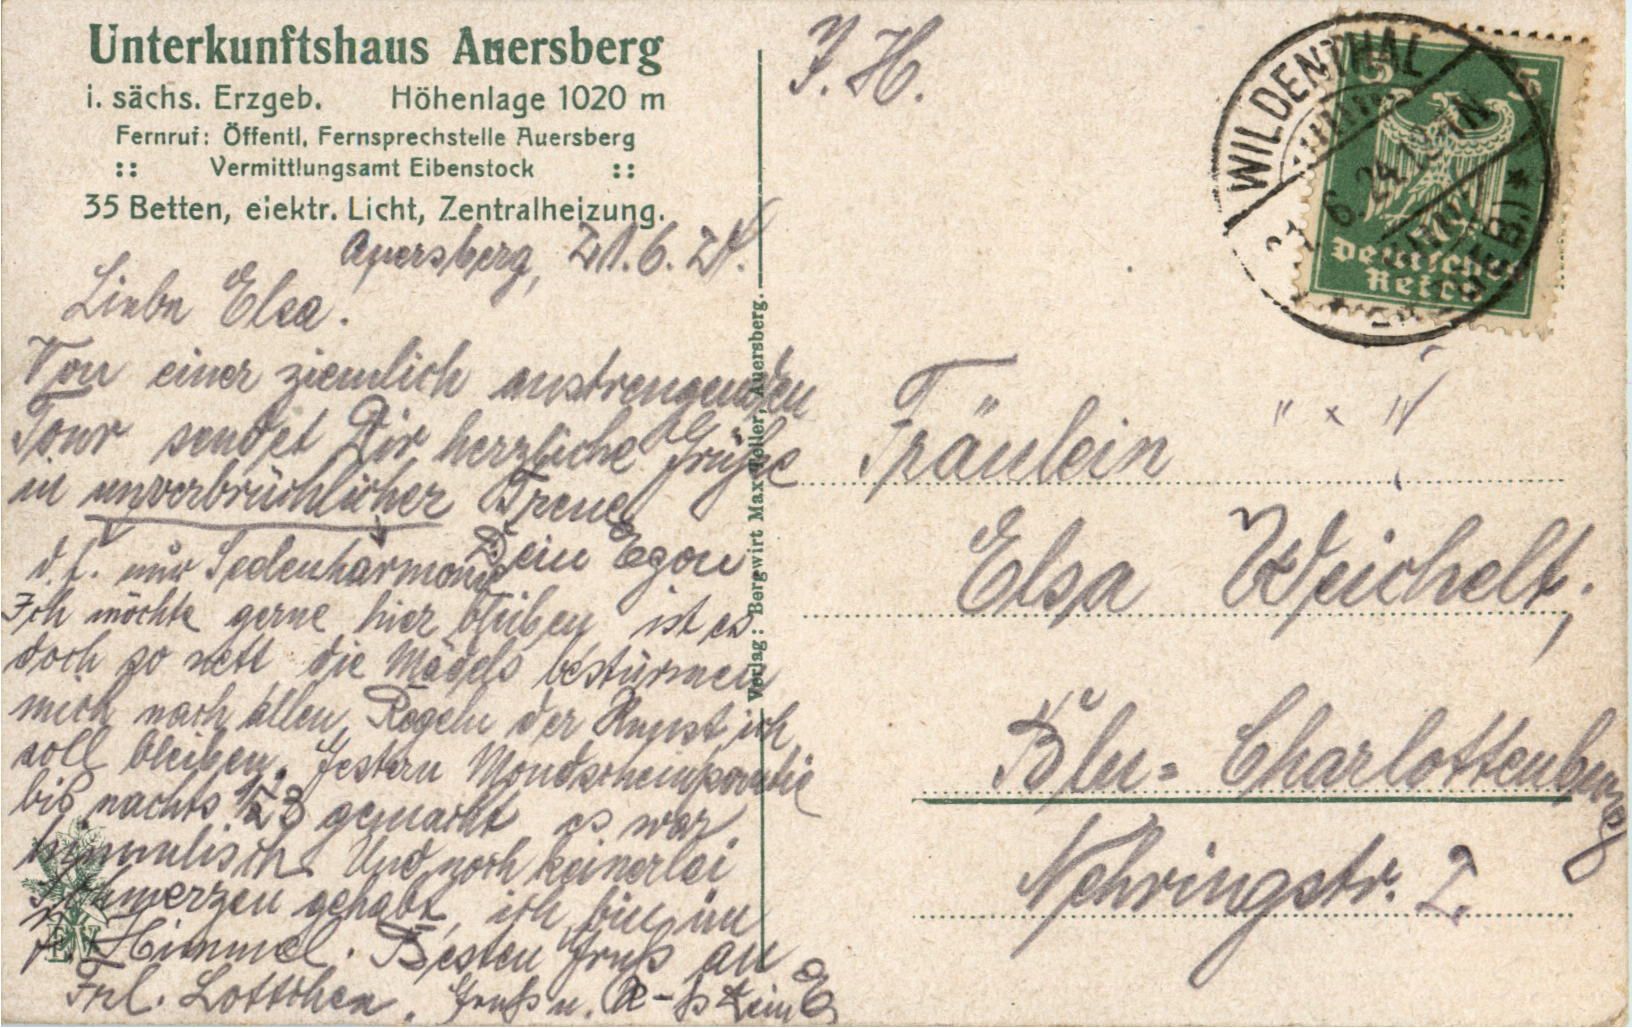 Unterkunftshaus Auersberg
i. sächs. Erzgeb. Höhenlage 1020 m
Fernruf: Öffentl. Fernsprechstelle Auersberg
:: Vermittlungsamt Eibenstock ::
35 Betten, elektr. Licht, Zentralheizung.
Auersberg, 21.6.24.
Liebe Elsa.
Von einer ziemlich anstrengenden
Tour sendet Dir herzliche Grüße
in unverbrüchlicher Treue
Dein Egon
d.h. nur Seelenharmonie
Ich möchte gerne hier bleiben ist es
doch so nett die Mädels bestürmen
mich nach allen Regeln der Kunst ich
soll bleiben. Gestern Mondscheinpartie
bis nachts 1/2 3 gemacht es war
himmlisch. Und noch keinerlei
Schmerzen gehabt, ich bin im
7. Himmel. Besten Gruß an
Frl. Lottchen. Gruß u. K-ß Dein E
Verlag: Bergwirt Max Keller, Auersberg.
EV
J. H.
WILDENTHAL
6.24
(ERZGEB.)
5 5
Deutsches
Reich
Fräulein
Elsa Weichelt,
Bln = Charlottenburg
Nehringstr. 2